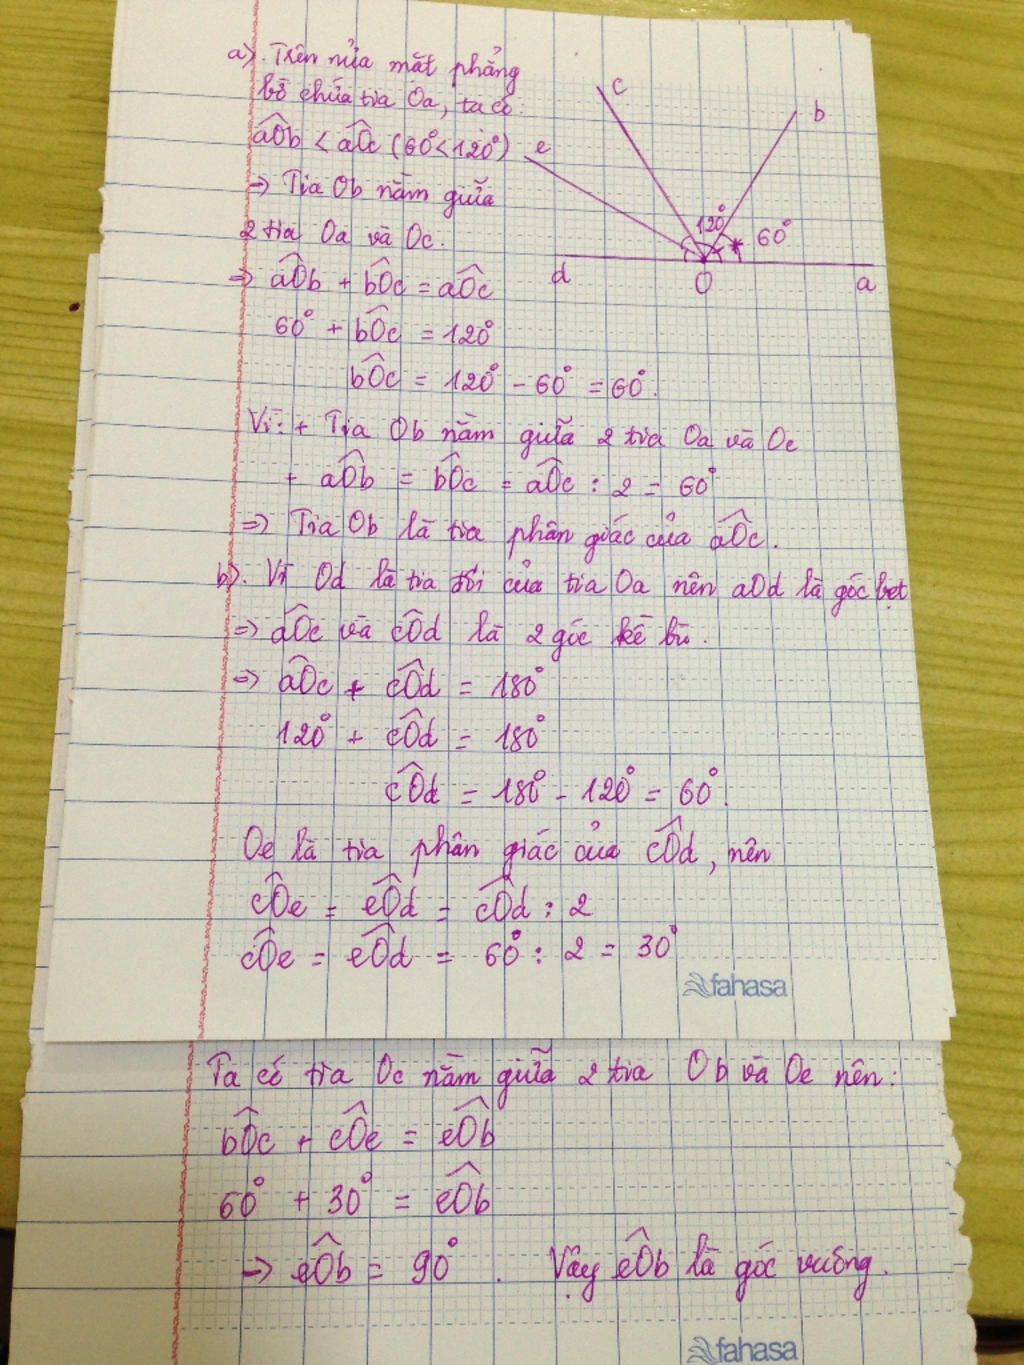 a). Trên nửa mặt phẳng
bờ chứa tia Oa, ta có:
aÔb < aÔc (60° < 120°)
=> Tia Ob nằm giữa
2 tia Oa và Oc.
=> aÔb + bÔc = aÔc
60° + bÔc = 120°
bÔc = 120° - 60° = 60°.
c
b
e
120°
60°
d
O
a
Vì: + Tia Ob nằm giữa 2 tia Oa và Oc
+ aÔb = bÔc = aÔc : 2 = 60°
=> Tia Ob là tia phân giác của aÔc.
b). Vì Od là tia đối của tia Oa nên aOd là góc bẹt
=> aÔc và cÔd là 2 góc kề bù.
=> aÔc + cÔd = 180°
120° + cÔd = 180°
cÔd = 180° - 120° = 60°.
Oe là tia phân giác của cÔd, nên
cÔe = eÔd = cÔd : 2
cÔe = eÔd = 60° : 2 = 30°
fahasa
Ta có tia Oc nằm giữa 2 tia Ob và Oe nên:
bÔc + cÔe = eÔb
60° + 30° = eÔb
=> eÔb = 90°. Vậy eÔb là góc vuông.
fahasa